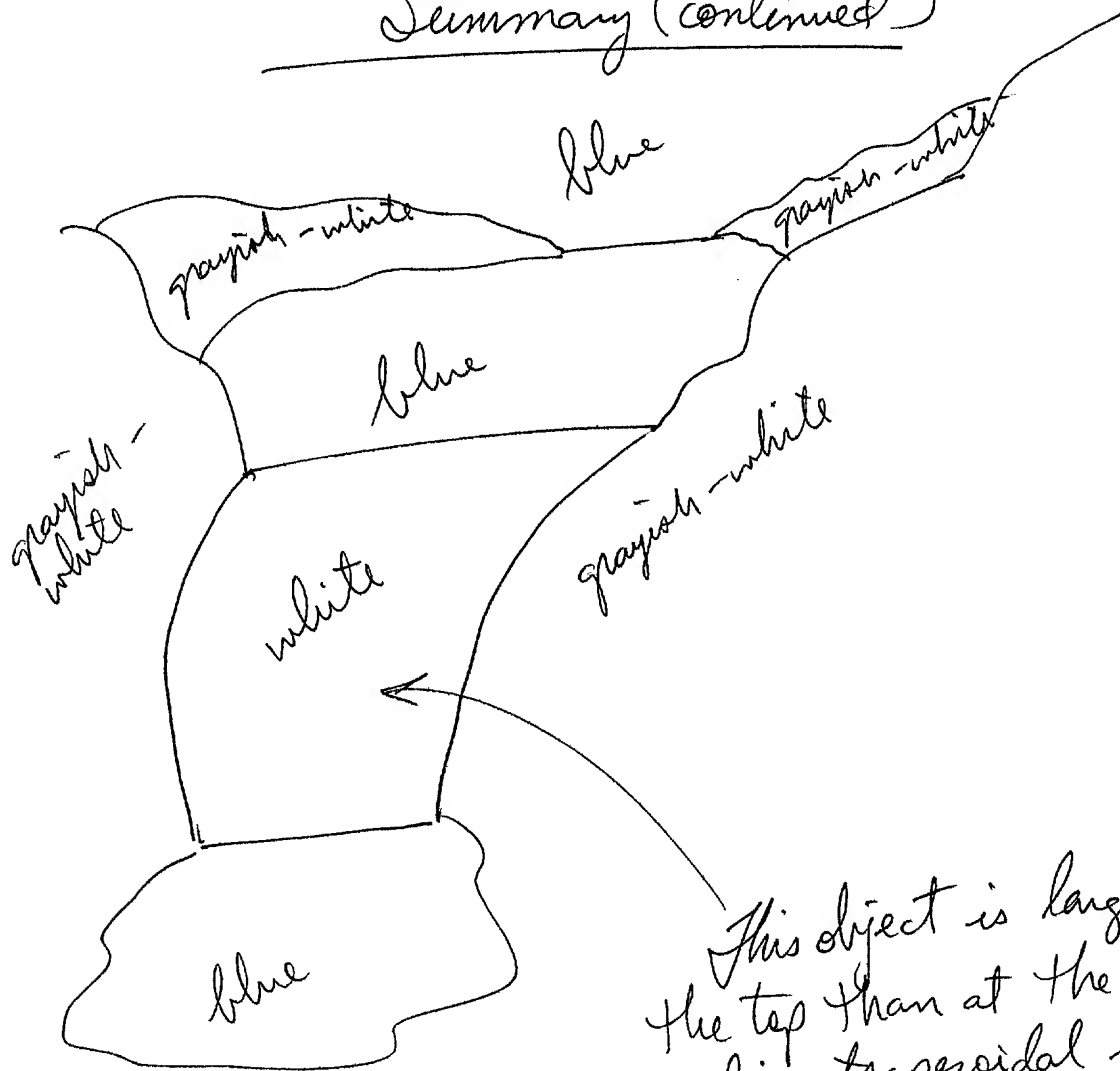 Summary (continued)
blue
grayish-white
grayish-white
blue
grayish-
white
grayish-white
white
This object is larg
the top than at the
blue